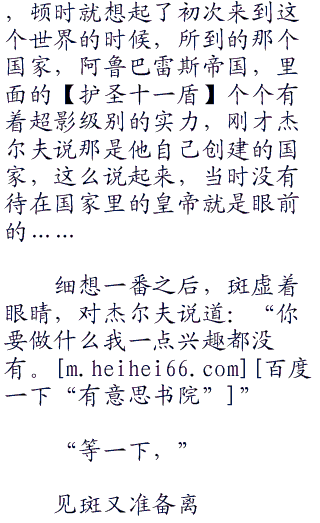 ，顿时就想起了初次来到这
个世界的时候，所到的那个
国家，阿鲁巴雷斯帝国，里
面的【护圣十一盾】个个有
着超影级别的实力，刚才杰
尔夫说那是他自己创建的国
家，这么说起来，当时没有
待在国家里的皇帝就是眼前
的……
细想一番之后，斑虚着
眼睛，对杰尔夫说道：“你
要做什么我一点兴趣都没
有。[m.heihei66.com][百度
一下“有意思书院”]”
“等一下，”
见斑又准备离